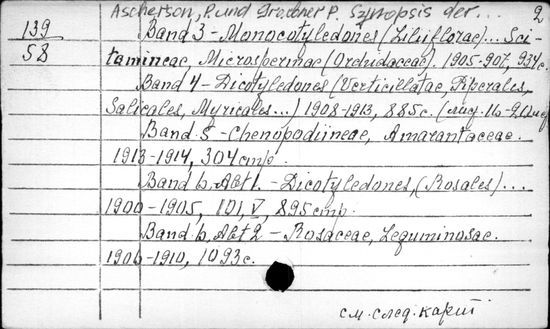 Ascherson, P. und Graebner P. Synopsis der... 2
139 Band 3 - Monocotyledones (Liliiflorae)... Sci-
58 tamineae, Microspermae (Orchidaceae). 1905-907, 934с.
Band 4 - Dicotyledones (Verticillatae, Piperales,
Salicales, Myricales...) 1908-1913, 885с.
Band 5 - Chenopodiineae, Amarantaceae.
1913-1914, 304 стр.
Band 6, Abt 1. - Dicotyledones, (Rosales)...
1900-1905, 101, V, 895 стр.
Band 6, Abt 2 - Rosaceae, Leguminosae.
1906-1910, 1093с.
см. след. карт